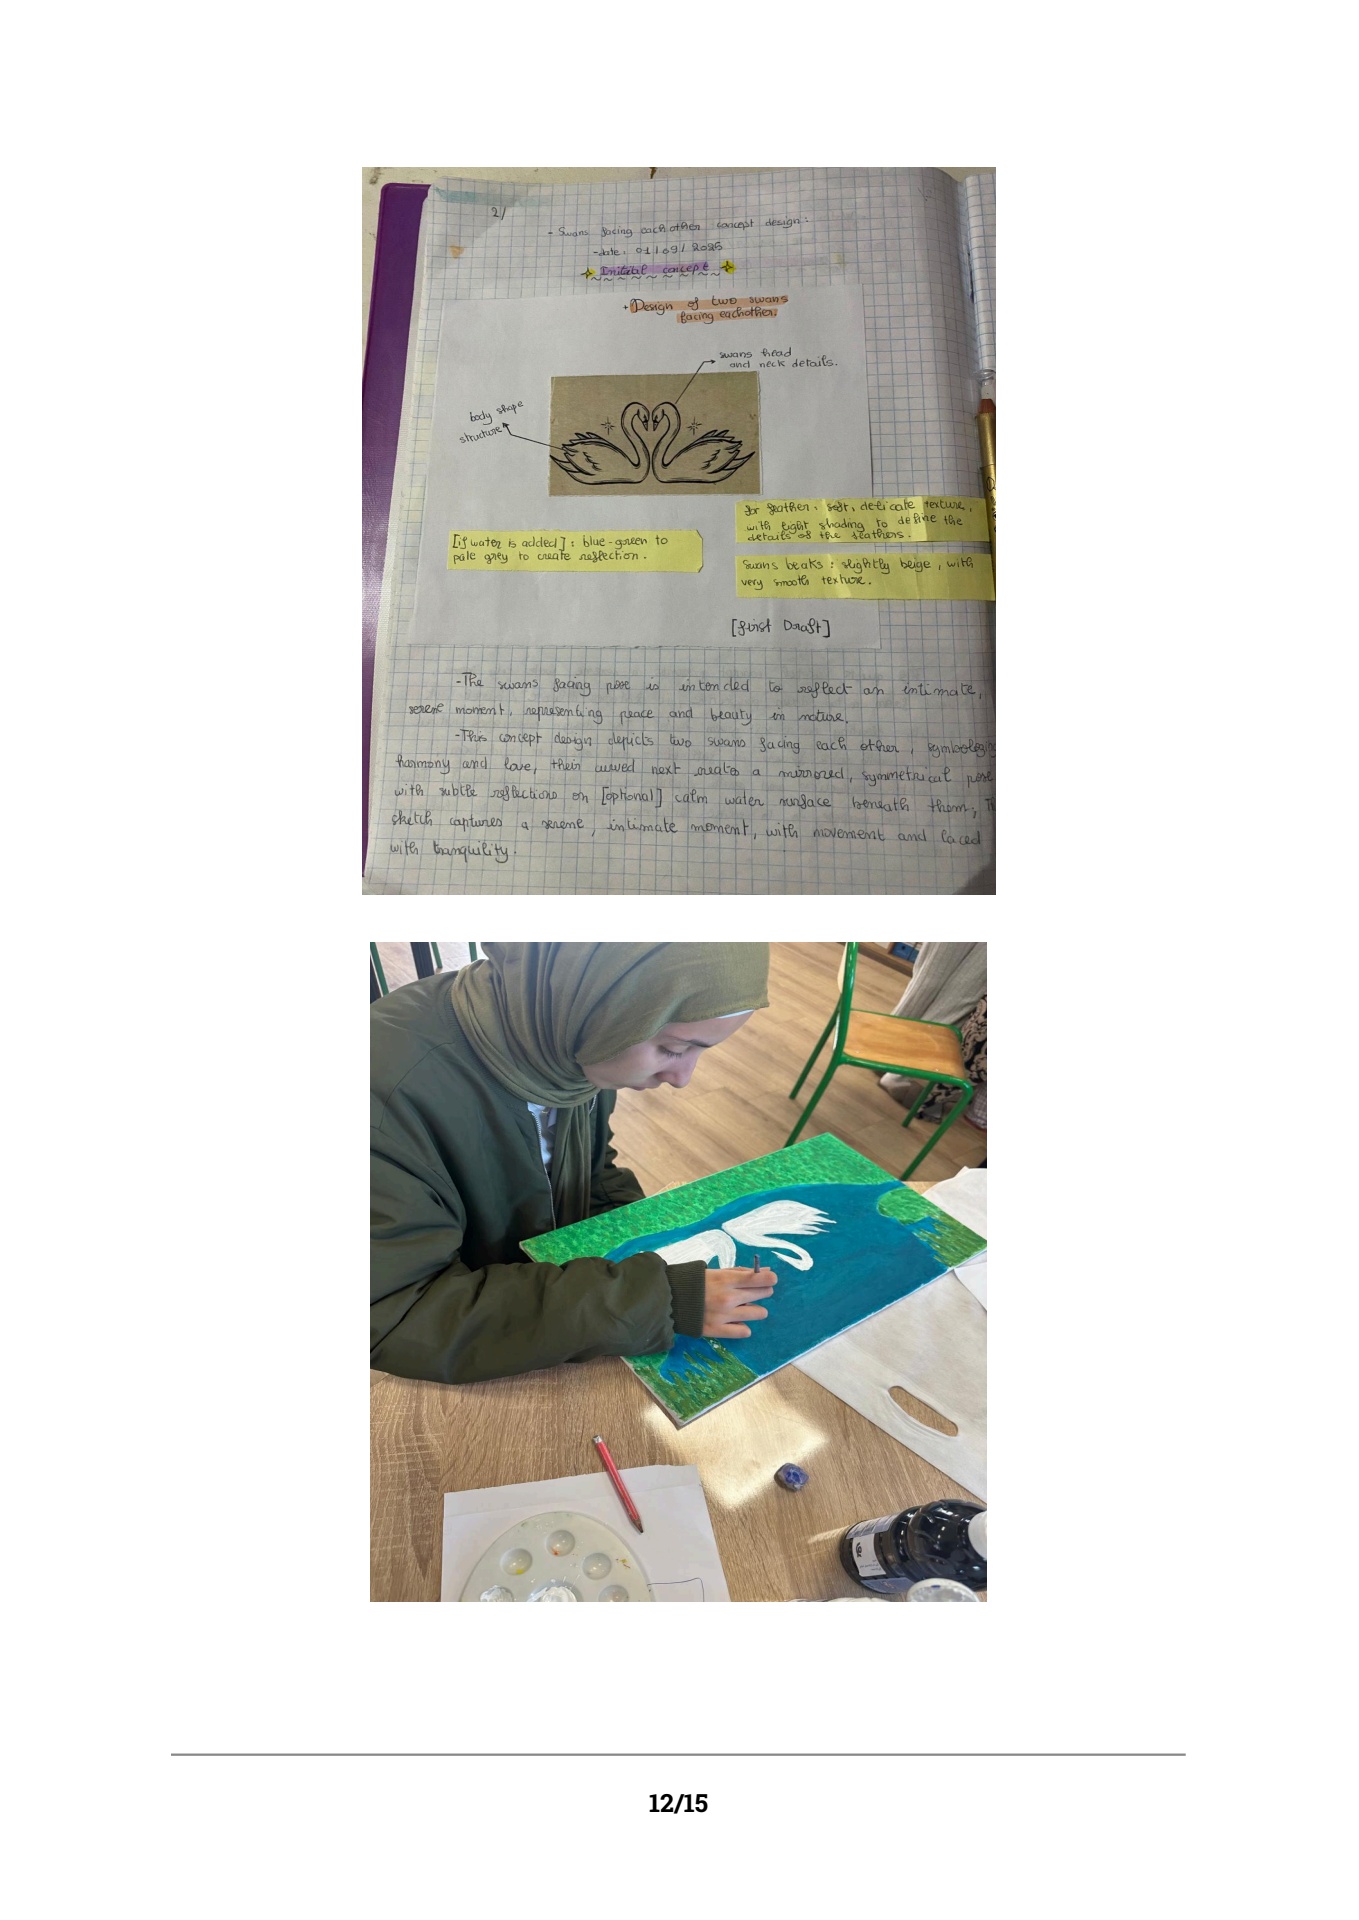 2/
- Swans facing eachother concept design:
-date: 01/09/2025
Initial concept
+ Design of two swans
facing eachother.
swans head
and neck details.
body shape
structure
for feather: soft, delicate texture,
with light shading to define the
details of the feathers.
[if water is added]: blue-green to
pale grey to create reflection.
Swans beaks: slightly beige, with
very smooth texture.
[first Draft]
-The swans facing pose is intended to reflect an intimate,
serene moment, representing peace and beauty in nature.
-This concept design depicts two swans facing each other,
harmony and love, their curved next creates a mirrored, symmetrical pose
with subtle reflections on [optional] calm water surface beneath them;
sketch captures a serene, intimate moment, with movement and laced
with tranquility.
12/15